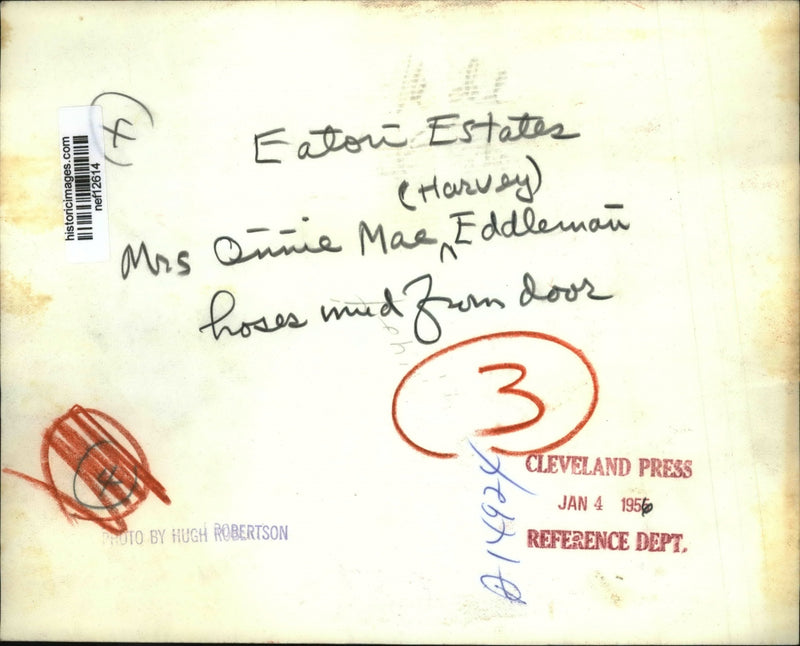 (4)
historicimages.com
nef12614
Eaton Estates
(Harvey)
Mrs Annie Mae ^ Eddleman
hoses mud from door
3
4
CLEVELAND PRESS
JAN 4 1956
REFERENCE DEPT.
PHOTO BY HUGH ROBERTSON